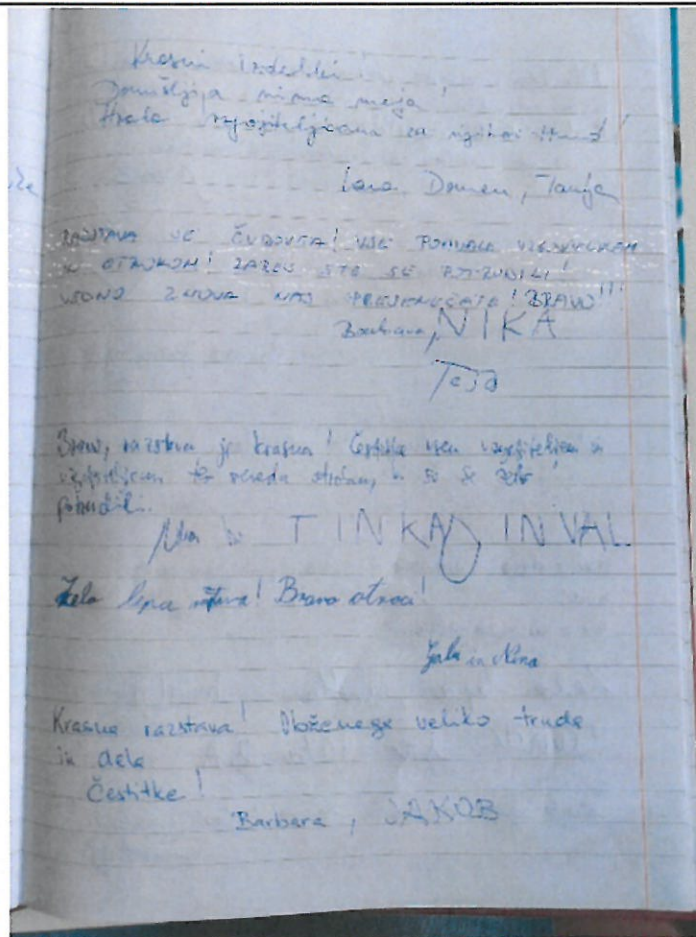 Krasni izdelki
Domišljija nima meja!
Hvala vzgojiteljicama za njihov trud!
Lara, Domen, Tanja
RAZSTAVA JE ČUDOVITA! VSE POHVALE VZGOJITELJICAM
IN OTROKOM! ZARES STE SE POTRUDILI!
VEDNO ZNOVA NAS PRESENEČATE! BRAVO!!!
Barbara, NIKA
Teja
Bravo, razstava je krasna! Čestitke vsem vzgojiteljem in
vzgojiteljicam ter seveda otrokom, ki so se zelo
potrudili.
TINKA IN VAL
Zelo lepa razstava! Bravo otroci!
Gala in Nina
Krasna razstava! Vloženega veliko truda
in dela
Čestitke!
Barbara, JAKOB